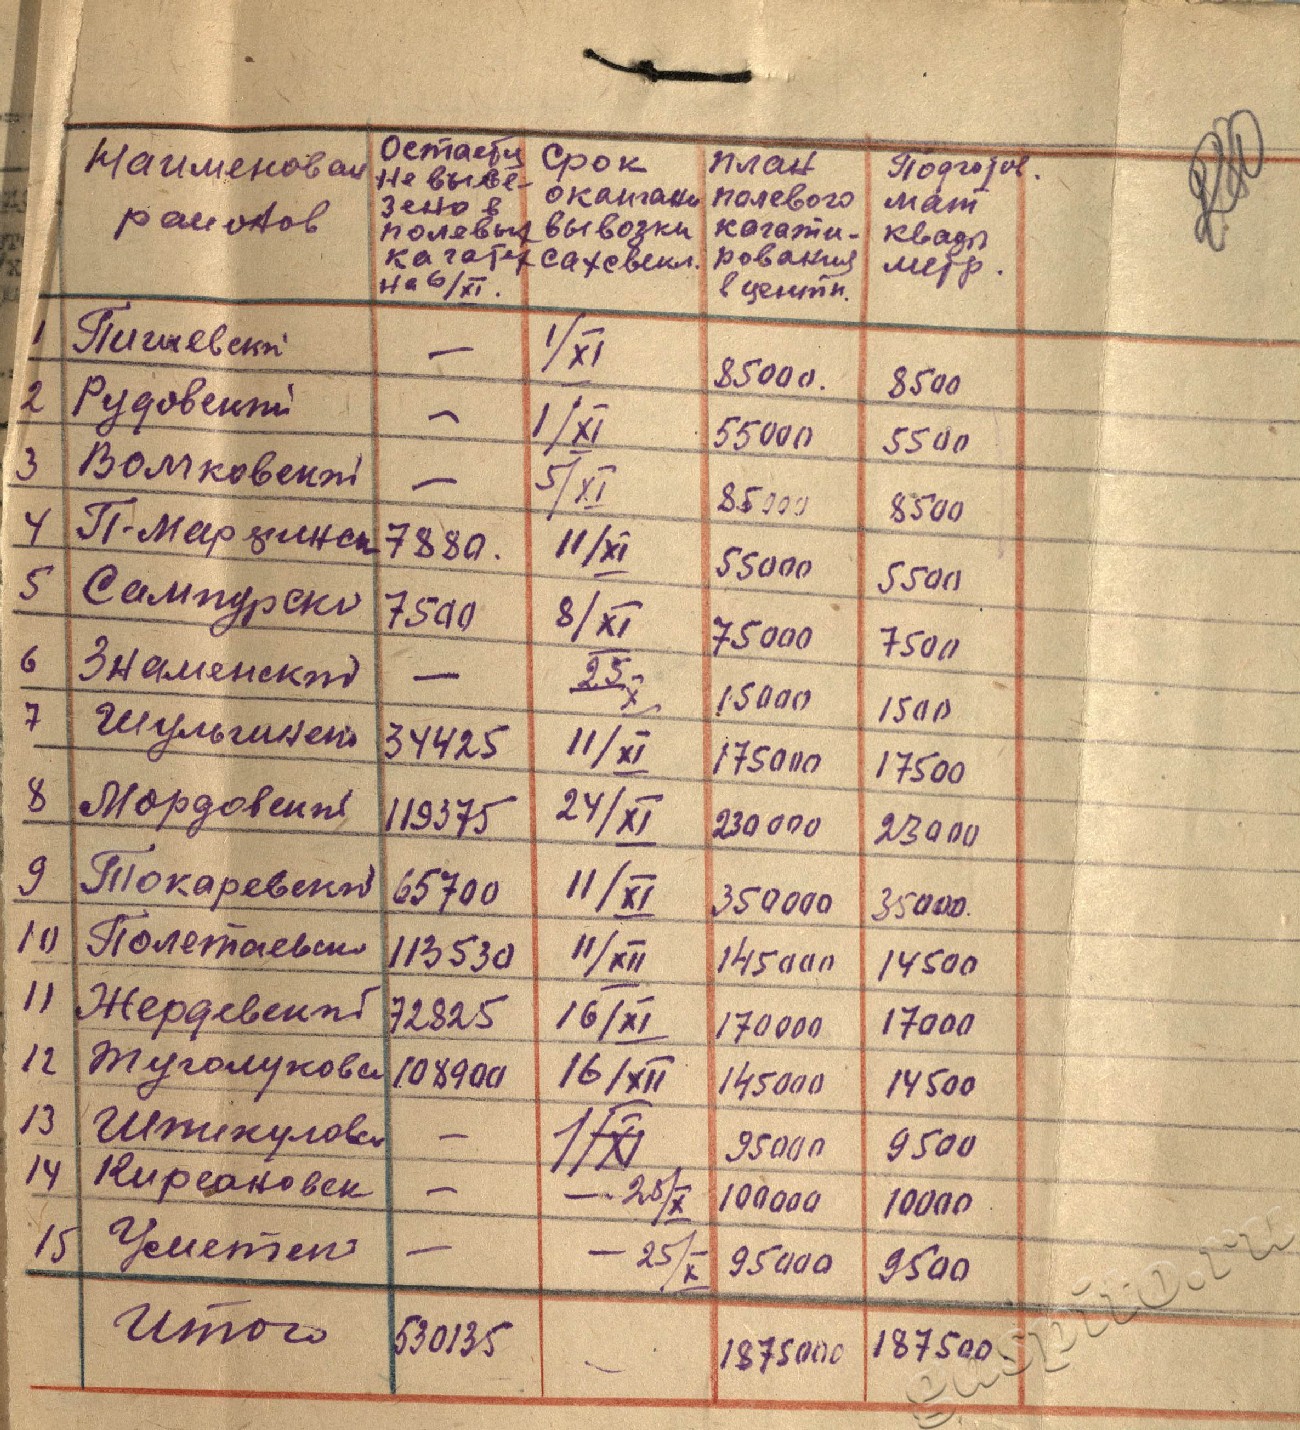 Наименован районов
Остается не выве-зено в полевых кагатах на 6/XI.
Срок окончан вывозки сахсвекл.
План полевого кагати-рования в центн.
Подготов. мат квадр метр.
1 Пичаевский — 1/XI 85000. 8500
2 Рудовский — 1/XI 55000 5500
3 Волчковский — 5/XI 85000 8500
4 П-Марфинск 7880. 11/XI 55000 5500
5 Сампурско 7500 8/XI 75000 7500
6 Знаменский — 25/X 15000 1500
7 Шульгинск 34425 11/XI 175000 17500
8 Мордовский 119375 24/XI 230000 23000
9 Токаревский 65700 11/XI 350000 35000.
10 Полетаевско 113530 11/XII 145000 14500
11 Жердевский 72825 16/XI 170000 17000
12 Туголуковск 108900 16/XII 145000 14500
13 Шпикуловск — 1/XI 95000 9500
14 Кирсановск — — 25/X 100000 10000
15 Уметск — — 25/X 95000 9500
Итого 530135 1875000 187500
gaspito.ru